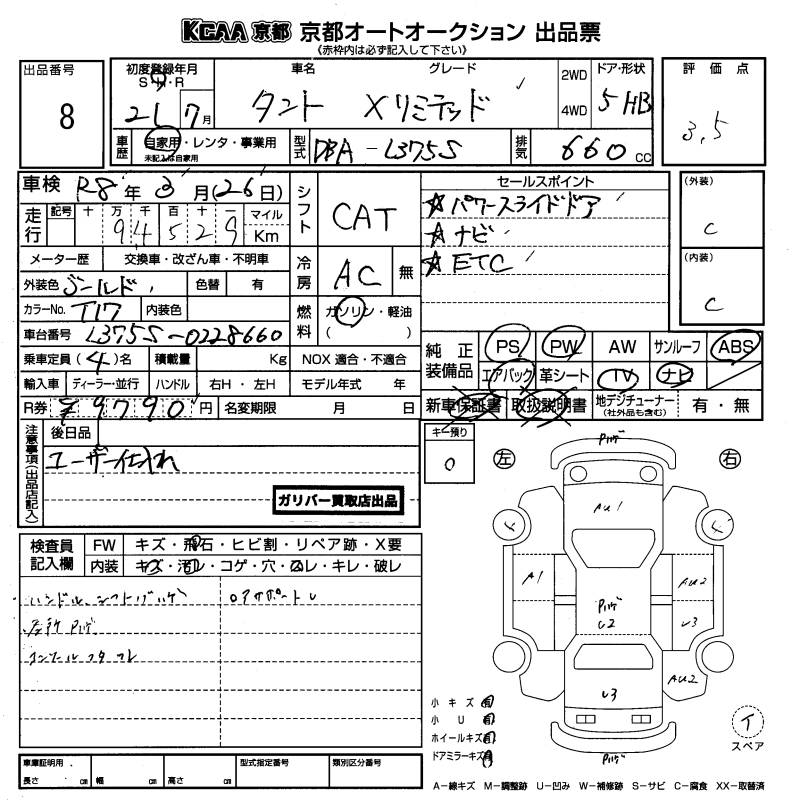 KCAA 京都 京都オートオークション 出品票
《赤枠内は必ず記入して下さい》
出品番号 8
初度登録年月 S・H・R 21 7月
車名 タント
グレード Xリミテッド
2WD 4WD
ドア・形状 5 HB
評価点 3.5
車歴 自家用・レンタ・事業用
未記入は自家用
型式 DBA-L375S
排気 660 cc
車検 R8年3月(26日)
走行 記号 十 万 千 百 十 一 マイル Km
94529
メーター歴 交換車・改ざん車・不明車
外装色 ゴールド 色替 有
カラーNo. T17 内装色
車台番号 L375S-0228660
乗車定員(4)名 積載量 Kg NOX 適合・不適合
輸入車 ディーラー・並行 ハンドル 右H・左H モデル年式 年
R券 ¥9790円 名変期限 月 日
シフト CAT
冷房 AC 無
燃料 ガソリン・軽油 ( )
セールスポイント
☆パワースライドドア
☆ナビ
☆ETC
(外装) C
(内装) C
純正装備品 PS PW AW サンルーフ ABS
エアバック 革シート TV ナビ
新車保証書 取扱説明書 地デジチューナー(社外品も含む) 有・無
注意事項(出品店記入)
後日品
ユーザー仕入れ
ガリバー買取店出品
キー預り 0
左 右
検査員記入欄
FW キズ・飛石・ヒビ割・リペア跡・X要
内装 キズ・汚レ・コゲ・穴・スレ・キレ・破レ
ハンドル、シフトハゲ
AU1
A1
AU2
U2
U3
AU2
U3
小キズ 有
小U 有
ホイールキズ 有
ドアミラーキズ 有
イ
スペア
車庫証明用 長さ cm 幅 cm 高さ cm
型式指定番号
類別区分番号
A-線キズ M-調整跡 U-凹み W-補修跡 S-サビ C-腐食 XX-取替済